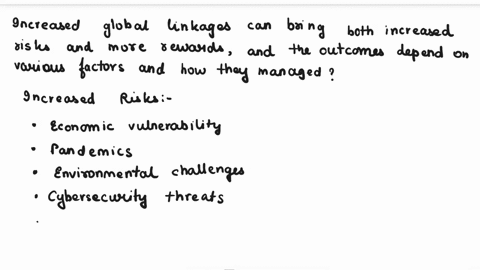 Increased global linkages can bring both increased
risks and more rewards, and the outcomes depend on
various factors and how they managed?
Increased Risks:-
• Economic vulnerability
• Pandemics
• Environmental challenges
• Cybersecurity threats
•